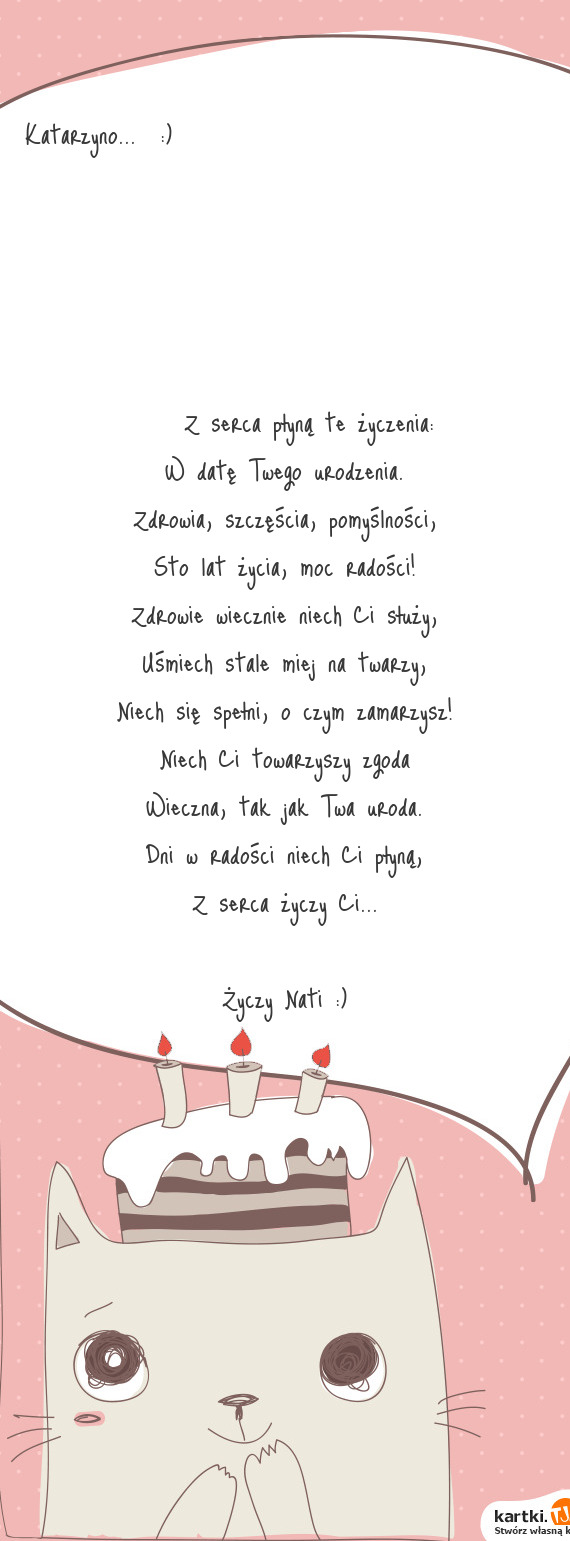 Katarzyno... :)
Z serca płyną te życzenia:
W datę Twego urodzenia.
Zdrowia, szczęścia, pomyślności,
Sto lat życia, moc radości!
Zdrowie wiecznie niech Ci służy,
Uśmiech stale miej na twarzy,
Niech się spełni, o czym zamarzysz!
Niech Ci towarzyszy zgoda
Wieczna, tak jak Twa uroda.
Dni w radości niech Ci płyną,
Z serca życzy Ci...
Życzy Nati :)
kartki.TJ
Stwórz własną k